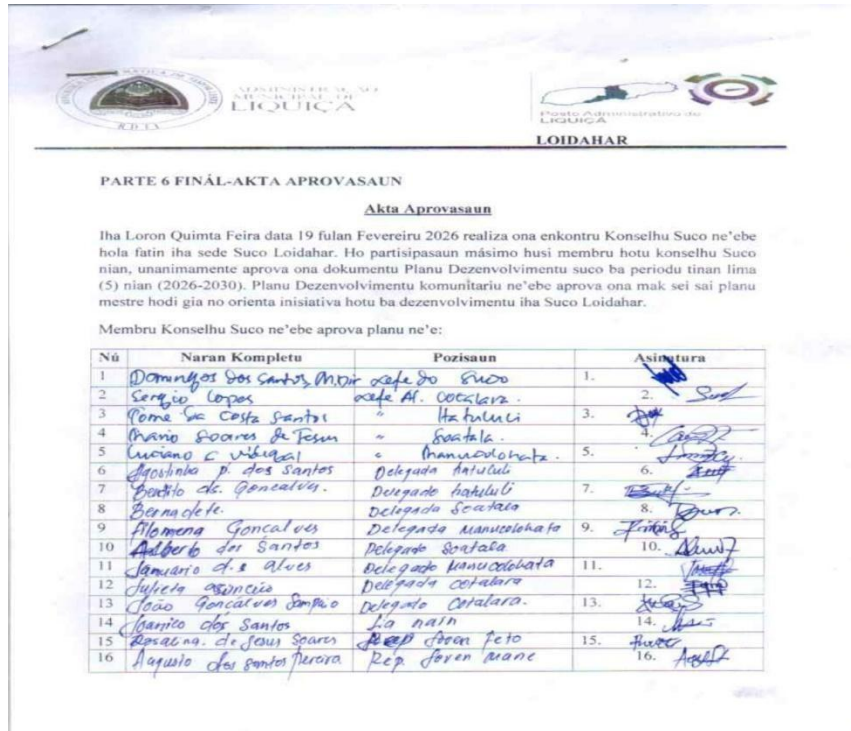 ADMINISTRAÇÃO
MUNICIPAL DE
LIQUIÇA
RDTL
Posto Administrativo de
LIQUIÇÁ
LOIDAHAR
PARTE 6 FINÁL-AKTA APROVASAUN
Akta Aprovasaun
Iha Loron Quimta Feira data 19 fulan Fevereiru 2026 realiza ona enkontru Konselhu Suco ne'ebe
hola fatin iha sede Suco Loidahar. Ho partisipasaun másimo husi membru hotu konselhu Suco
nian, unanimamente aprova ona dokumentu Planu Dezenvolvimentu suco ba periodu tinan lima
(5) nian (2026-2030). Planu Dezenvolvimentu komunitariu ne'ebe aprova ona mak sei sai planu
mestre hodi gia no orienta inisiativa hotu ba dezenvolvimentu iha Suco Loidahar.
Membru Konselhu Suco ne'ebe aprova planu ne'e:
Nú Naran Kompletu Pozisaun Asinatura
1 Domingos dos Santos Xefe do Suco 1.
2 Sergio Lopes Xefe Al. Cotalara. 2.
3 Tome da Costa Santos " Hatululi 3.
4 Mario Soares de Jesus " Soatala. 4.
5 Luciano C Vidigal " Manucolohata. 5.
6 Agostinha p. dos Santos Delegada hatululi 6.
7 Goncalves. Delegado hatululi 7.
8 Bernadete. Delegada Soatala 8.
9 Filomena Goncalves Delegada Manucolohata 9.
10 Alberto dos Santos Delegado Soatala 10.
11 Januario d.s Alves Delegado Manucolohata 11.
12 Julieta asuncio Delegada cotalara 12.
13 João Goncalves Sampaio Delegado Cotalara. 13.
14 Joanico dos Santos Lia nain 14.
15 Rosalina. de Jesus Soares Joven feto 15.
16 Augusto dos Santos Pereira Rep. Joven mane 16.